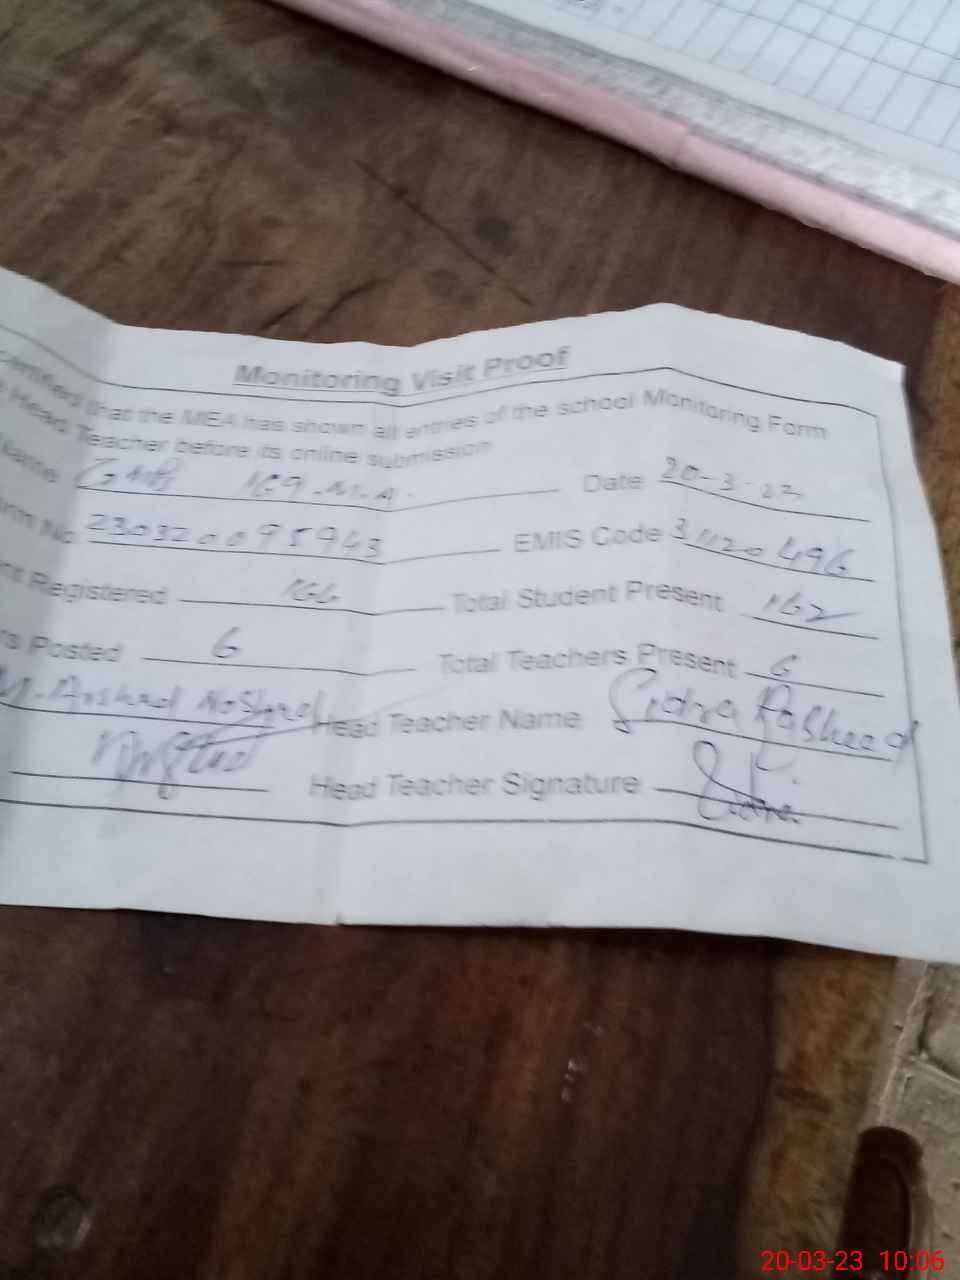 Monitoring Visit Proof
that the MEA has shown all entries of the school Monitoring Form
Head Teacher before its online submission
Name 169.M.A. Date 20-3-23
No 2303200095943 EMIS Code 31120496
Registered 166 Total Student Present 162
Posted 6 Total Teachers Present 6
M. Arshad Head Teacher Name Sidra Rasheed
Head Teacher Signature Sidra
20-03-23 10:06